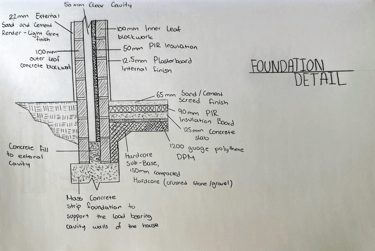 50mm Clear Cavity
22mm External
Sand and Cement
Render - Light Grey
finish
100mm
outer Leaf
concrete blockwork
100mm Inner Leaf
blockwork
50mm PIR Insulation
12.5mm Plasterboard
Internal Finish
FOUNDATION
DETAIL
65mm Sand/Cement
Screed Finish
90mm PIR
Insulation Board
125mm Concrete
slab
1200 guage polythene
DPM
Concrete Fill
to external
Cavity
Hardcore
Sub-Base,
150mm compacted
Hardcore (crushed stone/gravel)
Mass Concrete
strip foundation to
support the load bearing
cavity walls of the house